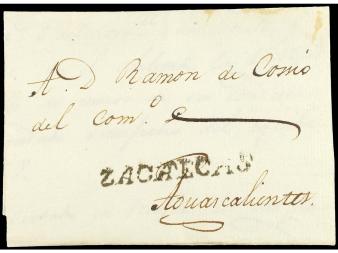 A. D Ramon de Cosio
del com.º
ZACATECAS
Aguascalientes.